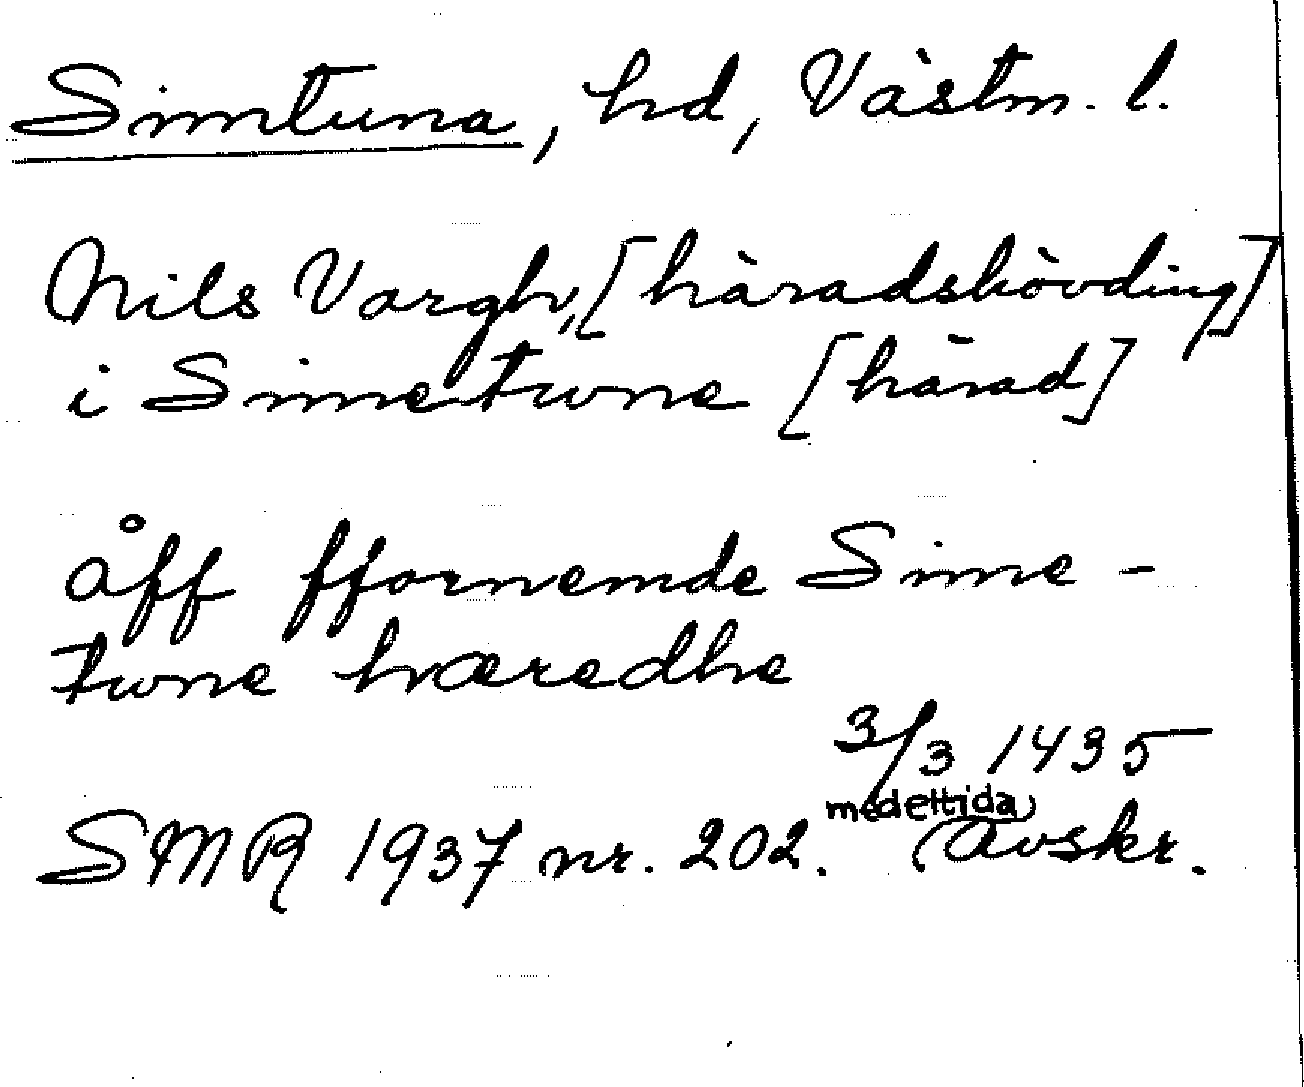 Simtuna, hd, Västm. l.
Nils Vargh, [häradshövding]
i Simetwne [härad]
åff ffornemde Sime-
twne hæredhe
3/3 1435
SMR 1937 nr. 202. medeltida avskr.